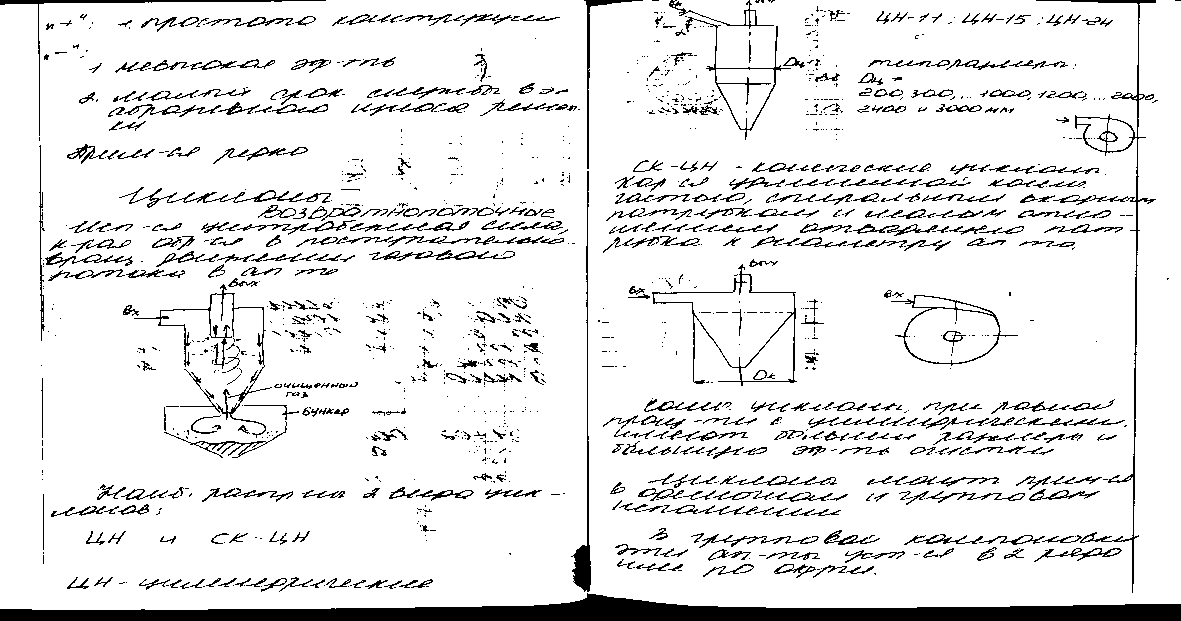 "+": 1. простота конструкции
"-":
1. невысокая эф-ть
2. малый срок службы в э-
абразивного износа решет-
ки
Прим-ся редко
Циклоны
возвратнопоточные
Исп-ся центробежная сила,
к-рая обр-ся в поступательно-
вращ. движении газового
потока в ап-те
Вых
Вх
очищенный
газ
бункер
Наиб. распр-ны 2 вида цик-
лонов:
ЦН и СК-ЦН
ЦН - цилиндрические
ЦН-11; ЦН-15; ЦН-24
вх
Dц
типоразмеры:
Dц =
200, 300, ... 1000, 1200, ... 2000,
2400 и 3000 мм
СК-ЦН - конические циклоны
Хар-ся удлиненной кони-
частью, спиральным входным
патрубком и малым отно-
шением выхлопного пат-
рубка к диаметру ап-та
Вых
Вх
Вх
Dк
Конич. циклоны, при равной
произ-ти с цилиндрическими,
имеют большие размеры и
большую эф-ть очистки
Циклоны могут прим-ся
в одиночном и групповом
исполнении
В групповой компоновке
эти ап-ты уст-ся в 2 ряда
или по окр-ти.